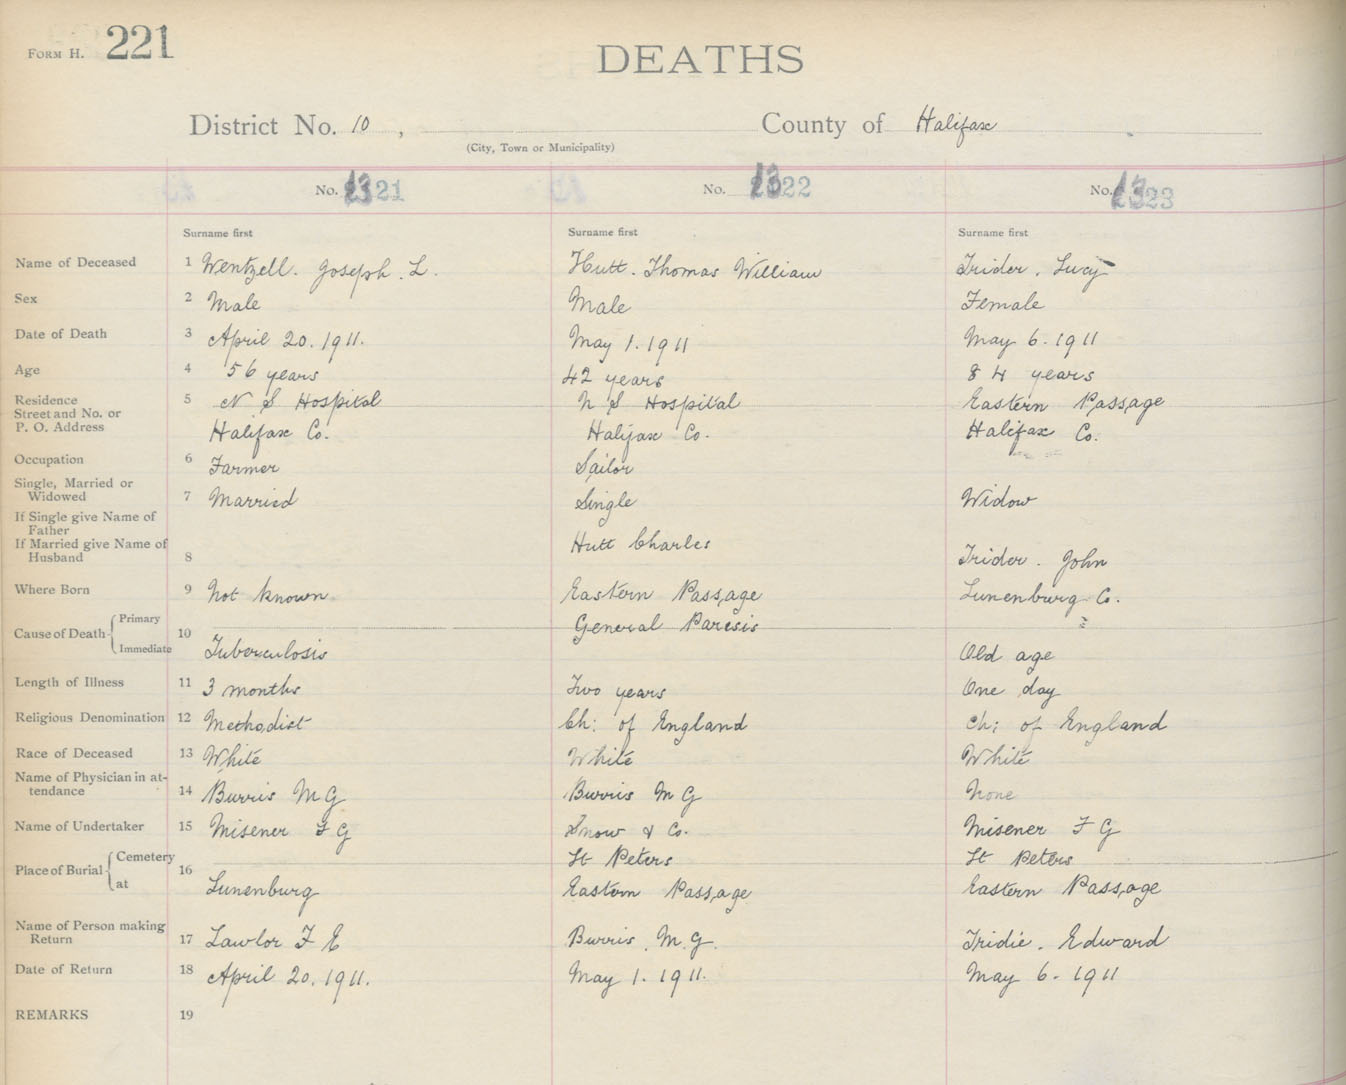 FORM H. 221
DEATHS
District No. 10 , County of Halifax
(City, Town or Municipality)
No. 1321 No. 1322 No. 1323
Surname first Surname first Surname first
Name of Deceased 1 Wentzell. Joseph. L. Hutt. Thomas William Trider. Lucy
Sex 2 Male Male Female
Date of Death 3 April 20. 1911. May 1. 1911 May 6. 1911
Age 4 56 years 42 years 84 years
Residence 5 N S Hospital N S Hospital Eastern Passage
Street and No. or
P. O. Address Halifax Co. Halifax Co. Halifax Co.
Occupation 6 Farmer Sailor
Single, Married or
Widowed 7 Married Single Widow
If Single give Name of
Father Hutt Charles
If Married give Name of
Husband 8 Trider. John
Where Born 9 Not known Eastern Passage Lunenburg Co.
Cause of Death Primary 10 General Paresis
Immediate Tuberculosis Old age
Length of Illness 11 3 months Two years One day
Religious Denomination 12 Methodist Ch: of England Ch: of England
Race of Deceased 13 White White White
Name of Physician in at-
tendance 14 Burris M G Burris M G None
Name of Undertaker 15 Misener F G Snow & Co. Misener F G
Place of Burial Cemetery 16 St Peters St Peters
at Lunenburg Eastern Passage Eastern Passage
Name of Person making
Return 17 Lawlor F E Burris. M. G. Tridie. Edward
Date of Return 18 April 20. 1911. May 1. 1911. May 6. 1911
REMARKS 19